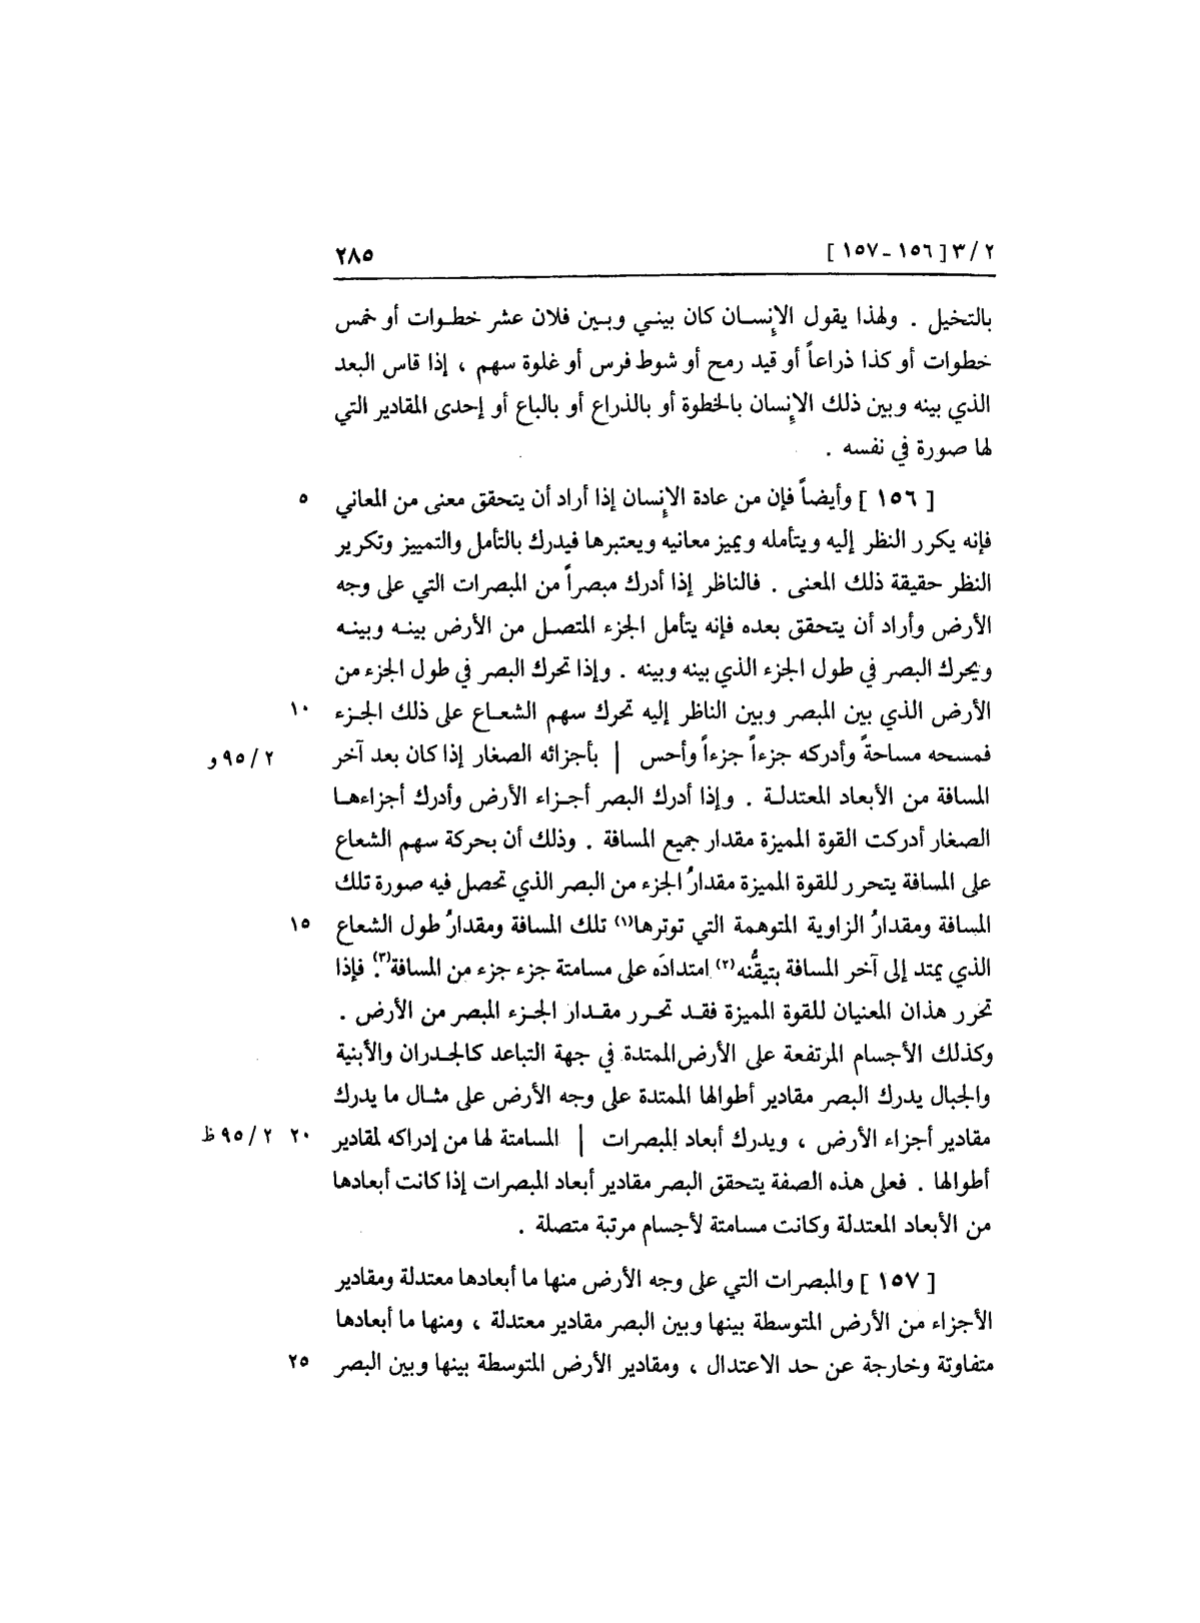 ٢ / ٣ [ ١٥٦ - ١٥٧ ] ٢٨٥
بالتخيل . ولهذا يقول الإنسان كان بيني وبين فلان عشر خطوات أو خمس
خطوات أو كذا ذراعاً أو قيد رمح أو شوط فرس أو غلوة سهم ، إذا قاس البعد
الذي بينه وبين ذلك الإنسان بالخطوة أو بالذراع أو بالباع أو إحدى المقادير التي
لها صورة في نفسه .
[ ١٥٦ ] وأيضاً فإن من عادة الإنسان إذا أراد أن يتحقق معنى من المعاني ٥
فإنه يكرر النظر إليه ويتأمله ويميز معانيه ويعتبرها فيدرك بالتأمل والتمييز وتكرير
النظر حقيقة ذلك المعنى . فالناظر إذا أدرك مبصراً من المبصرات التي على وجه
الأرض وأراد أن يتحقق بعده فإنه يتأمل الجزء المتصل من الأرض بينه وبينه
ويحرك البصر في طول الجزء الذي بينه وبينه . وإذا تحرك البصر في طول الجزء من
الأرض الذي بين المبصر وبين الناظر إليه تحرك سهم الشعاع على ذلك الجزء ١٠
فمسحه مساحةً وأدركه جزءاً جزءاً وأحس | بأجزائه الصغار إذا كان بعد آخر ٢ / ٩٥ و
المسافة من الأبعاد المعتدلة . وإذا أدرك البصر أجزاء الأرض وأدرك أجزاءها
الصغار أدركت القوة المميزة مقدار جميع المسافة . وذلك أن بحركة سهم الشعاع
على المسافة يتحرر للقوة المميزة مقدارُ الجزء من البصر الذي تحصل فيه صورة تلك
المسافة ومقدارُ الزاوية المتوهمة التي توترها(١) تلك المسافة ومقدارُ طول الشعاع ١٥
الذي يمتد إلى آخر المسافة بتيقُّنه(٢) امتدادَه على مسامتة جزء جزء من المسافة(٣). فإذا
تحرر هذان المعنيان للقوة المميزة فقد تحرر مقدار الجزء المبصر من الأرض .
وكذلك الأجسام المرتفعة على الأرض الممتدة في جهة التباعد كالجدران والأبنية
والجبال يدرك البصر مقادير أطوالها الممتدة على وجه الأرض على مثال ما يدرك
مقادير أجزاء الأرض ، ويدرك أبعاد المبصرات | المسامتة لها من إدراكه لمقادير ٢٠ ٢ / ٩٥ ظ
أطوالها . فعلى هذه الصفة يتحقق البصر مقادير أبعاد المبصرات إذا كانت أبعادها
من الأبعاد المعتدلة وكانت مسامتة لأجسام مرتبة متصلة .
[ ١٥٧ ] والمبصرات التي على وجه الأرض منها ما أبعادها معتدلة ومقادير
الأجزاء من الأرض المتوسطة بينها وبين البصر مقادير معتدلة ، ومنها ما أبعادها
متفاوتة وخارجة عن حد الاعتدال ، ومقادير الأرض المتوسطة بينها وبين البصر ٢٥